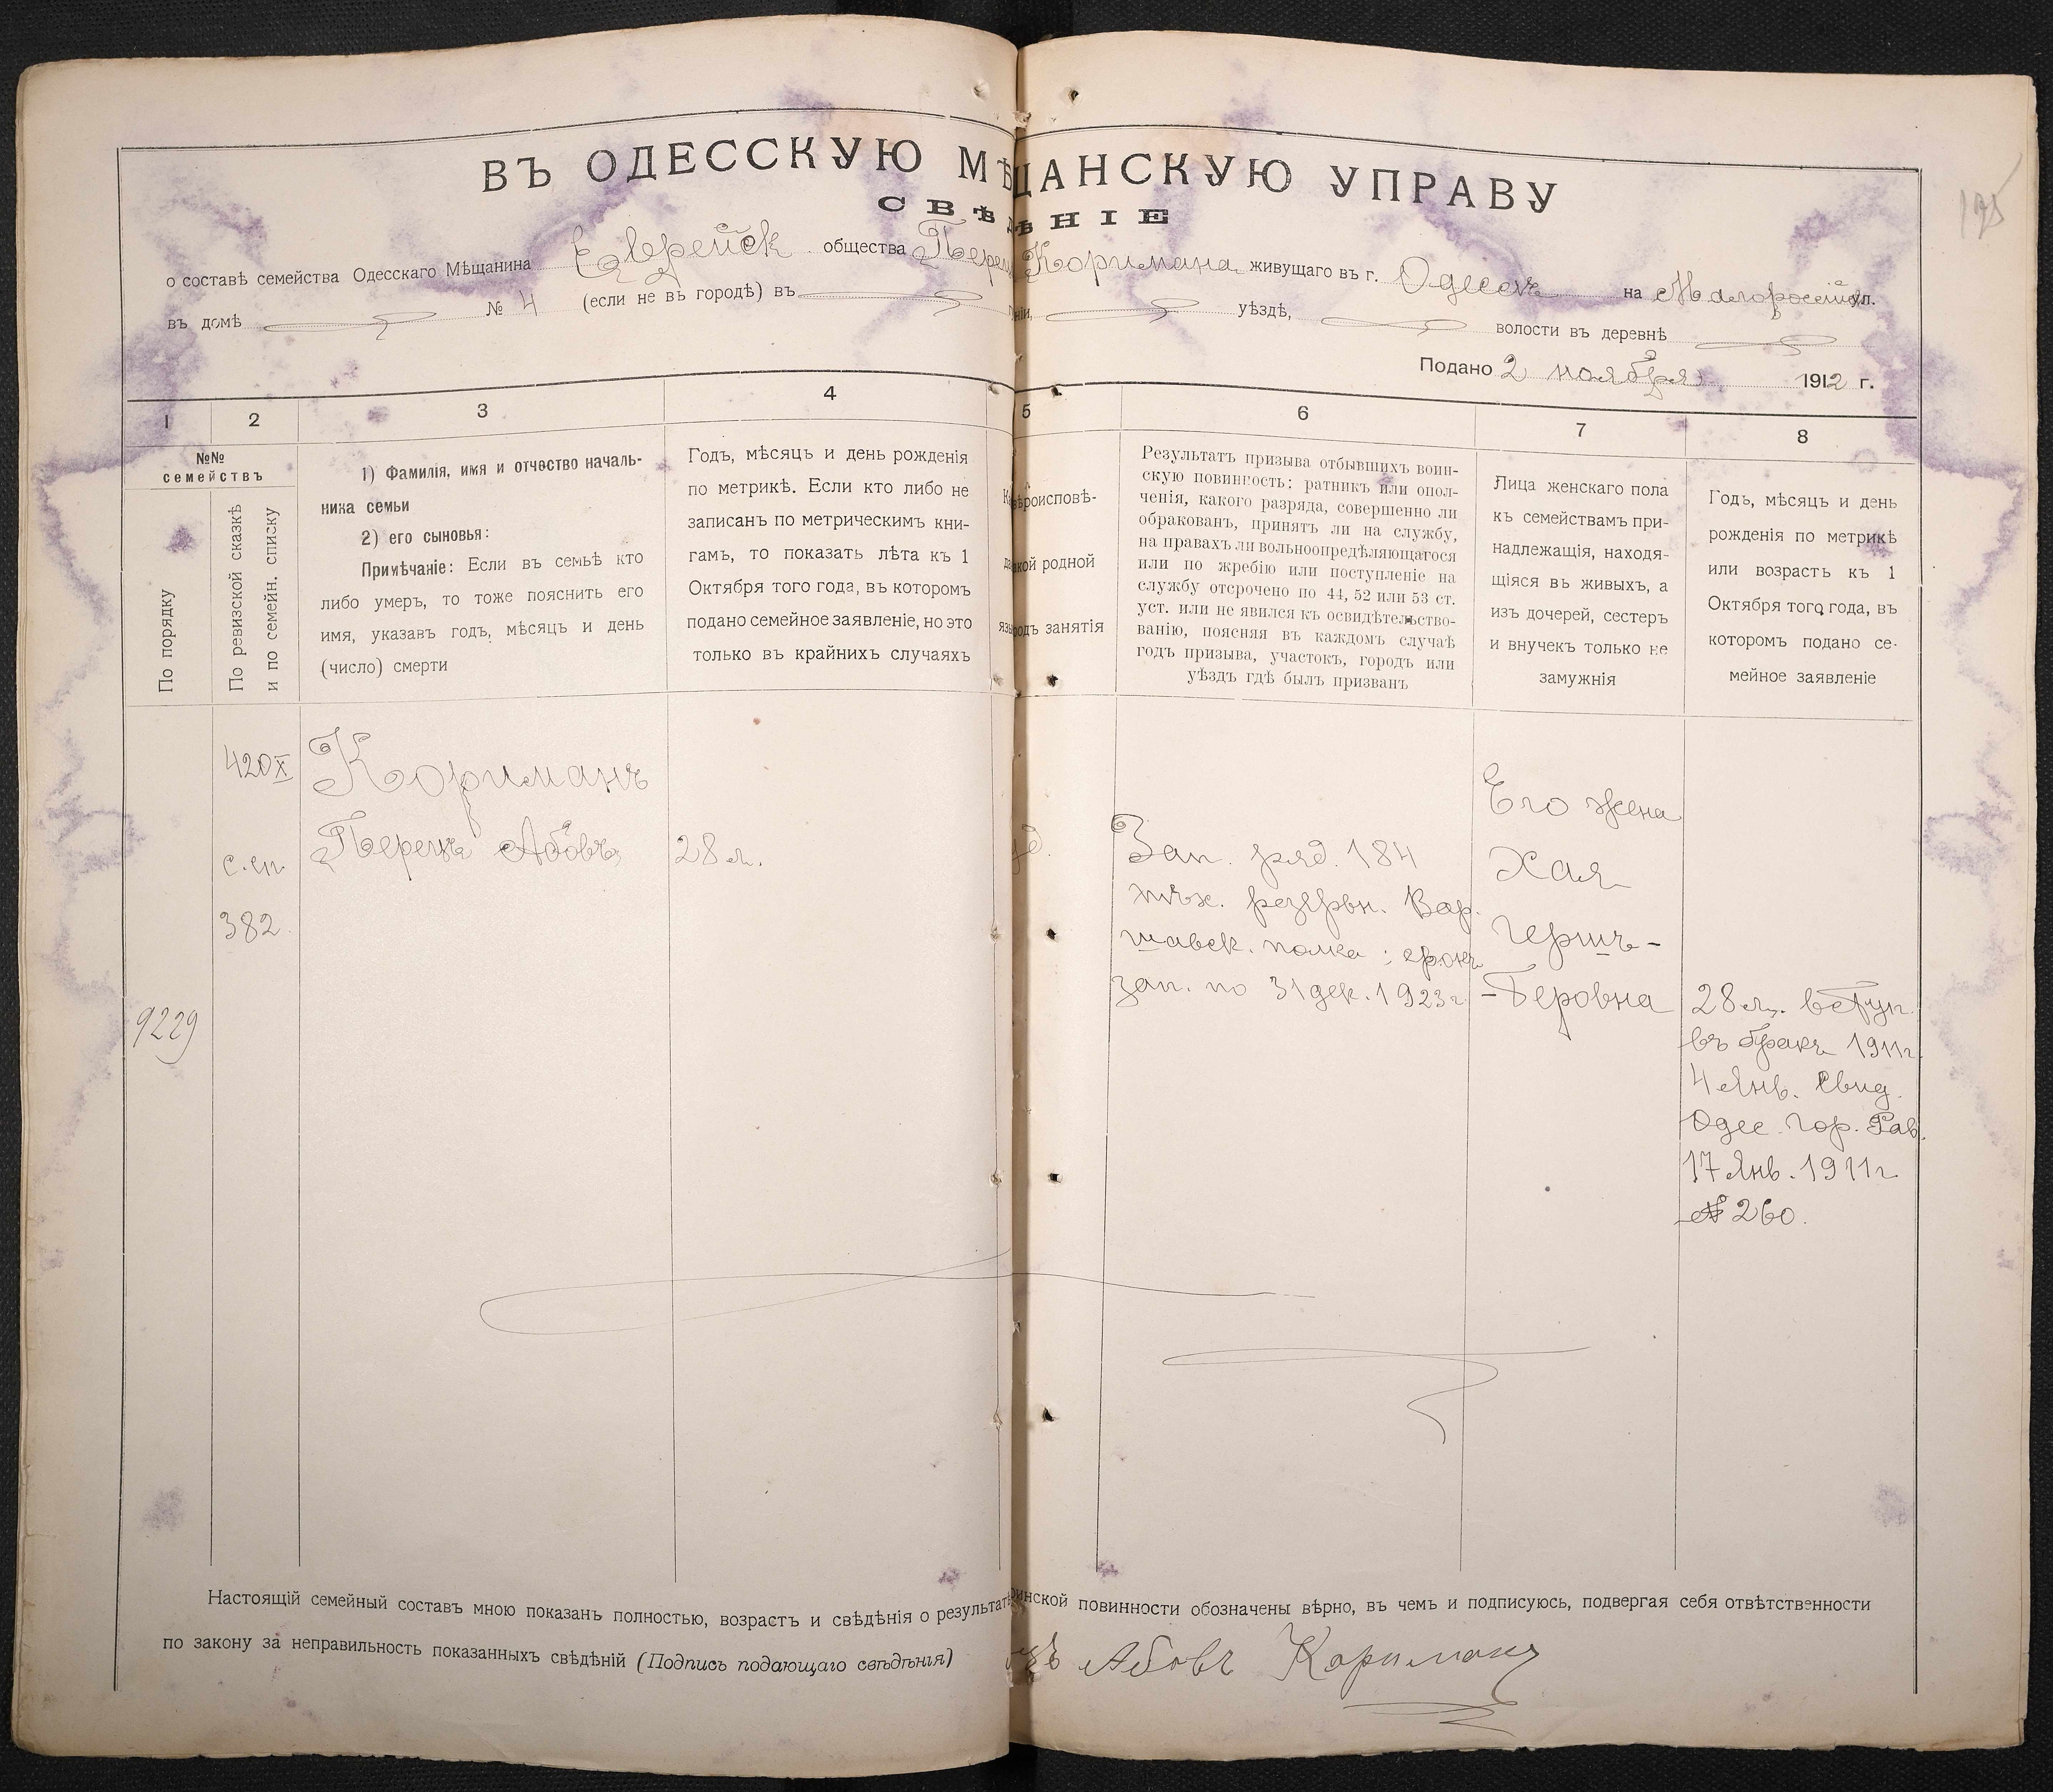 195
ВЪ ОДЕССКУЮ МѢЩАНСКУЮ УПРАВУ
СВѢДѢНІЕ
о составѣ семейства Одесскаго Мѣщанина Еврейск общества Перец Коримана живущаго въ г. Одессѣ на Малороссійс ул.
въ домѣ № 4 (если не въ городѣ) въ ніи, уѣздѣ, волости въ деревнѣ
Подано 2 ноября 1912 г.
1 2 3 4 5 6 7 8
№№
семействъ
По порядку
По ревизской сказкѣ
и по семейн. списку
1) Фамилія, имя и отчество началь-
ника семьи
2) его сыновья:
Примѣчаніе: Если въ семьѣ кто
либо умеръ, то тоже пояснить его
имя, указавъ годъ, мѣсяцъ и день
(число) смерти
Годъ, мѣсяцъ и день рожденія
по метрикѣ. Если кто либо не
записанъ по метрическимъ кни-
гамъ, то показать лѣта къ 1
Октября того года, въ которомъ
подано семейное заявленіе, но это
только въ крайнихъ случаяхъ
вѣроисповѣ-
акой родной
родъ занятія
Результатъ призыва отбывшихъ воин-
скую повинность: ратникъ или опол-
ченія, какого разряда, совершенно ли
обракованъ, принятъ ли на службу,
на правахъ ли вольноопредѣляющагося
или по жребію или поступленіе на
службу отсрочено по 44, 52 или 53 ст.
уст. или не явился къ освидѣтельство-
ванію, поясняя въ каждомъ случаѣ
годъ призыва, участокъ, городъ или
уѣздъ гдѣ былъ призванъ
Лица женскаго пола
къ семействамъ при-
надлежащія, находя-
щіяся въ живыхъ, а
изъ дочерей, сестеръ
и внучекъ только не
замужнія
Годъ, мѣсяцъ и день
рожденія по метрикѣ
или возрастъ къ 1
Октября того года, въ
которомъ подано се-
мейное заявленіе
9229
420 X
с.сп.
382
Кориманъ
Перецъ Абовъ
28 л.
уд.
Зап. ряд. 184
пѣх. резервн. Вар-
шавск. полка; срокъ
зап. по 31 дек. 1923 г
Его жена
Хая
Гершъ-
-Беровна
28 л. вступ.
въ бракъ 1911 г.
4 Янв. Свид.
Одес. гор. Рав.
17 Янв. 1911 г
№ 260.
Настоящій семейный составъ мною показанъ полностью, возрастъ и свѣдѣнія о результатѣ воинской повинности обозначены вѣрно, въ чемъ и подписуюсь, подвергая себя отвѣтственности
по закону за неправильность показанныхъ свѣдѣній (Подпись подающаго свѣдѣнія) цъ Абовъ Кориманъ